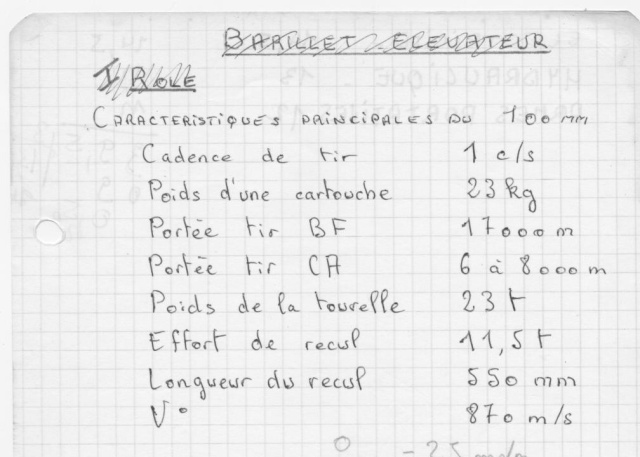 BARILLET ELEVATEUR
I) ROLE
CARACTERISTIQUES PRINCIPALES DU 100 mm
Cadence de tir 1 c/s
Poids d'une cartouche 23 kg
Portée tir BF 17000 m
Portée tir CA 6 à 8000 m
Poids de la tourelle 23 t
Effort de recul 11,5 t
Longueur du recul 550 mm
V° 870 m/s